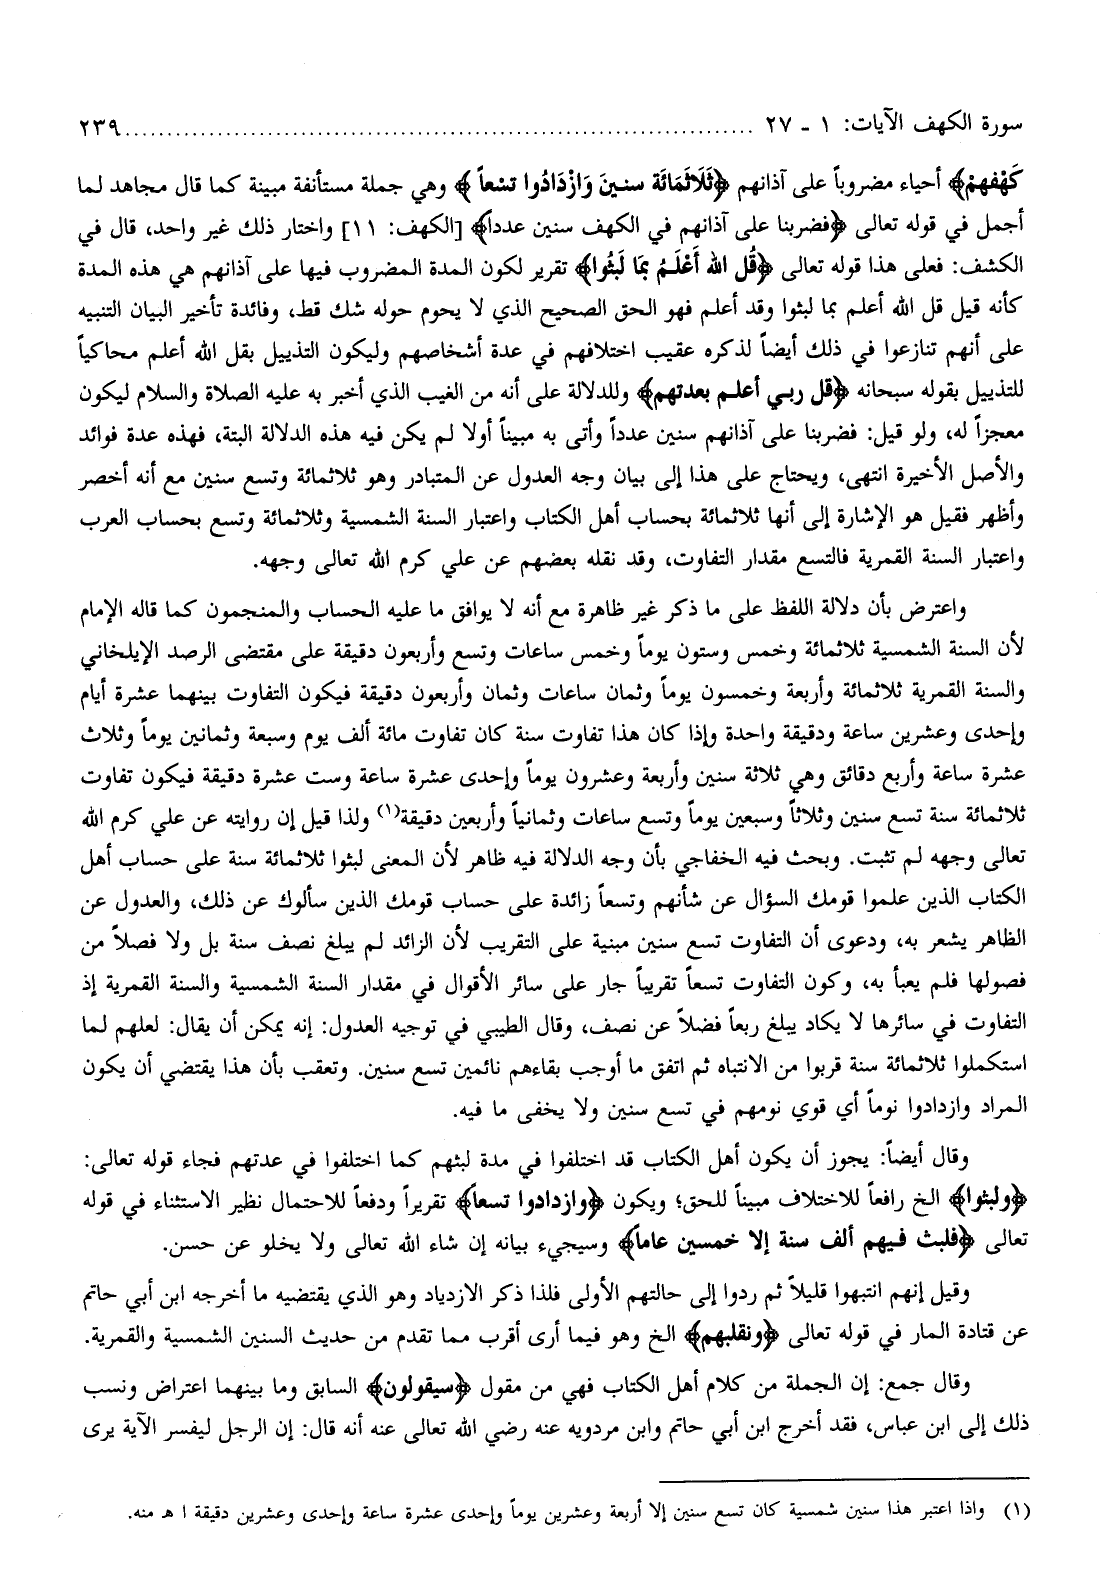 سورة الكهف الآيات: ١ ـ ٢٧ ................................................................ ٢٣٩
كَهْفِهِمْ﴾ أحياء مضروباً على آذانهم ﴿ثَلَاثَمَائَة سنينَ وَازْدَادُوا تسْعاً﴾ وهي جملة مستأنفة مبينة كما قال مجاهد لما
أجمل في قوله تعالى ﴿فضربنا على آذانهم في الكهف سنين عدداً﴾ [الكهف: ١١] واختار ذلك غير واحد، قال في
الكشف: فعلى هذا قوله تعالى ﴿قُل الله أَعْلَمُ بمَا لَبثُوا﴾ تقرير لكون المدة المضروب فيها على آذانهم هي هذه المدة
كأنه قيل قل الله أعلم بما لبثوا وقد أعلم فهو الحق الصحيح الذي لا يحوم حوله شك قط، وفائدة تأخير البيان التنبيه
على أنهم تنازعوا في ذلك أيضاً لذكره عقيب اختلافهم في عدة أشخاصهم وليكون التذييل بقل الله أعلم محاكياً
للتذييل بقوله سبحانه ﴿قل ربي أعلم بعدتهم﴾ وللدلالة على أنه من الغيب الذي أخبر به عليه الصلاة والسلام ليكون
معجزاً له، ولو قيل: فضربنا على آذانهم سنين عدداً وأتى به مبيناً أولا لم يكن فيه هذه الدلالة البتة، فهذه عدة فوائد
والأصل الأخيرة انتهى، ويحتاج على هذا إلى بيان وجه العدول عن المتبادر وهو ثلاثمائة وتسع سنين مع أنه أخصر
وأظهر فقيل هو الإشارة إلى أنها ثلاثمائة بحساب أهل الكتاب واعتبار السنة الشمسية وثلاثمائة وتسع بحساب العرب
واعتبار السنة القمرية فالتسع مقدار التفاوت، وقد نقله بعضهم عن علي كرم الله تعالى وجهه.
واعترض بأن دلالة اللفظ على ما ذكر غير ظاهرة مع أنه لا يوافق ما عليه الحساب والمنجمون كما قاله الإمام
لأن السنة الشمسية ثلاثمائة وخمس وستون يوماً وخمس ساعات وتسع وأربعون دقيقة على مقتضى الرصد الإيلخاني
والسنة القمرية ثلاثمائة وأربعة وخمسون يوماً وثمان ساعات وثمان وأربعون دقيقة فيكون التفاوت بينهما عشرة أيام
وإحدى وعشرين ساعة ودقيقة واحدة وإذا كان هذا تفاوت سنة كان تفاوت مائة ألف يوم وسبعة وثمانين يوماً وثلاث
عشرة ساعة وأربع دقائق وهي ثلاثة سنين وأربعة وعشرون يوماً وإحدى عشرة ساعة وست عشرة دقيقة فيكون تفاوت
ثلاثمائة سنة تسع سنين وثلاثاً وسبعين يوماً وتسع ساعات وثمانياً وأربعين دقيقة(١) ولذا قيل إن روايته عن علي كرم الله
تعالى وجهه لم تثبت. وبحث فيه الخفاجي بأن وجه الدلالة فيه ظاهر لأن المعنى لبثوا ثلاثمائة سنة على حساب أهل
الكتاب الذين علموا قومك السؤال عن شأنهم وتسعاً زائدة على حساب قومك الذين سألوك عن ذلك، والعدول عن
الظاهر يشعر به، ودعوى أن التفاوت تسع سنين مبنية على التقريب لأن الزائد لم يبلغ نصف سنة بل ولا فصلاً من
فصولها فلم يعبأ به، وكون التفاوت تسعاً تقريباً جار على سائر الأقوال في مقدار السنة الشمسية والسنة القمرية إذ
التفاوت في سائرها لا يكاد يبلغ ربعاً فضلاً عن نصف، وقال الطيبي في توجيه العدول: إنه يمكن أن يقال: لعلهم لما
استكملوا ثلاثمائة سنة قربوا من الانتباه ثم اتفق ما أوجب بقاءهم نائمين تسع سنين. وتعقب بأن هذا يقتضي أن يكون
المراد وازدادوا نوماً أي قوي نومهم في تسع سنين ولا يخفى ما فيه.
وقال أيضاً: يجوز أن يكون أهل الكتاب قد اختلفوا في مدة لبثهم كما اختلفوا في عدتهم فجاء قوله تعالى:
﴿ولبثوا﴾ الخ رافعاً للاختلاف مبيناً للحق؛ ويكون ﴿وازدادوا تسعاً﴾ تقريراً ودفعاً للاحتمال نظير الاستثناء في قوله
تعالى ﴿فلبث فيهم ألف سنة إلا خمسين عاماً﴾ وسيجيء بيانه إن شاء الله تعالى ولا يخلو عن حسن.
وقيل إنهم انتبهوا قليلاً ثم ردوا إلى حالتهم الأولى فلذا ذكر الازدياد وهو الذي يقتضيه ما أخرجه ابن أبي حاتم
عن قتادة المار في قوله تعالى ﴿ونقلبهم﴾ الخ وهو فيما أرى أقرب مما تقدم من حديث السنين الشمسية والقمرية.
وقال جمع: إن الجملة من كلام أهل الكتاب فهي من مقول ﴿سيقولون﴾ السابق وما بينهما اعتراض ونسب
ذلك إلى ابن عباس، فقد أخرج ابن أبي حاتم وابن مردويه عنه رضي الله تعالى عنه أنه قال: إن الرجل ليفسر الآية يرى
(١) واذا اعتبر هذا سنين شمسية كان تسع سنين إلا أربعة وعشرين يوماً وإحدى عشرة ساعة وإحدى وعشرين دقيقة ا هـ منه.